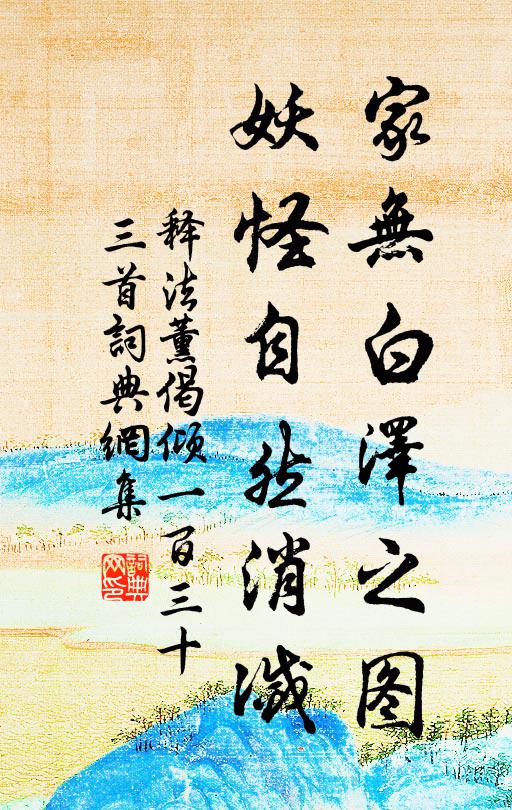 家無白澤之图
妖怪自然消滅
释法薰偈倾一百三十
三首詞典網集
詞典网印